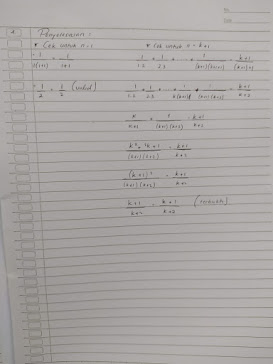 No.
Date.
2. Penyelesaian :
• Cek untuk n = 1
= 1/1(1+1) = 1/1+1
= 1/2 = 1/2 (valid)
• Cek untuk n = k+1
1/1.2 + 1/2.3 + ... + 1/(k+1)(k+1+1) = k+1/(k+1)+1
1/1.2 + 1/2.3 + ... + 1/k(k+1) + 1/(k+1)(k+2) = k+1/k+2
k/k+1 + 1/(k+1)(k+2) = k+1/k+2
k²+2k+1/(k+1)(k+2) = k+1/k+2
(k+1)²/(k+1)(k+2) = k+1/k+2
k+1/k+2 = k+1/k+2 (terbukti)